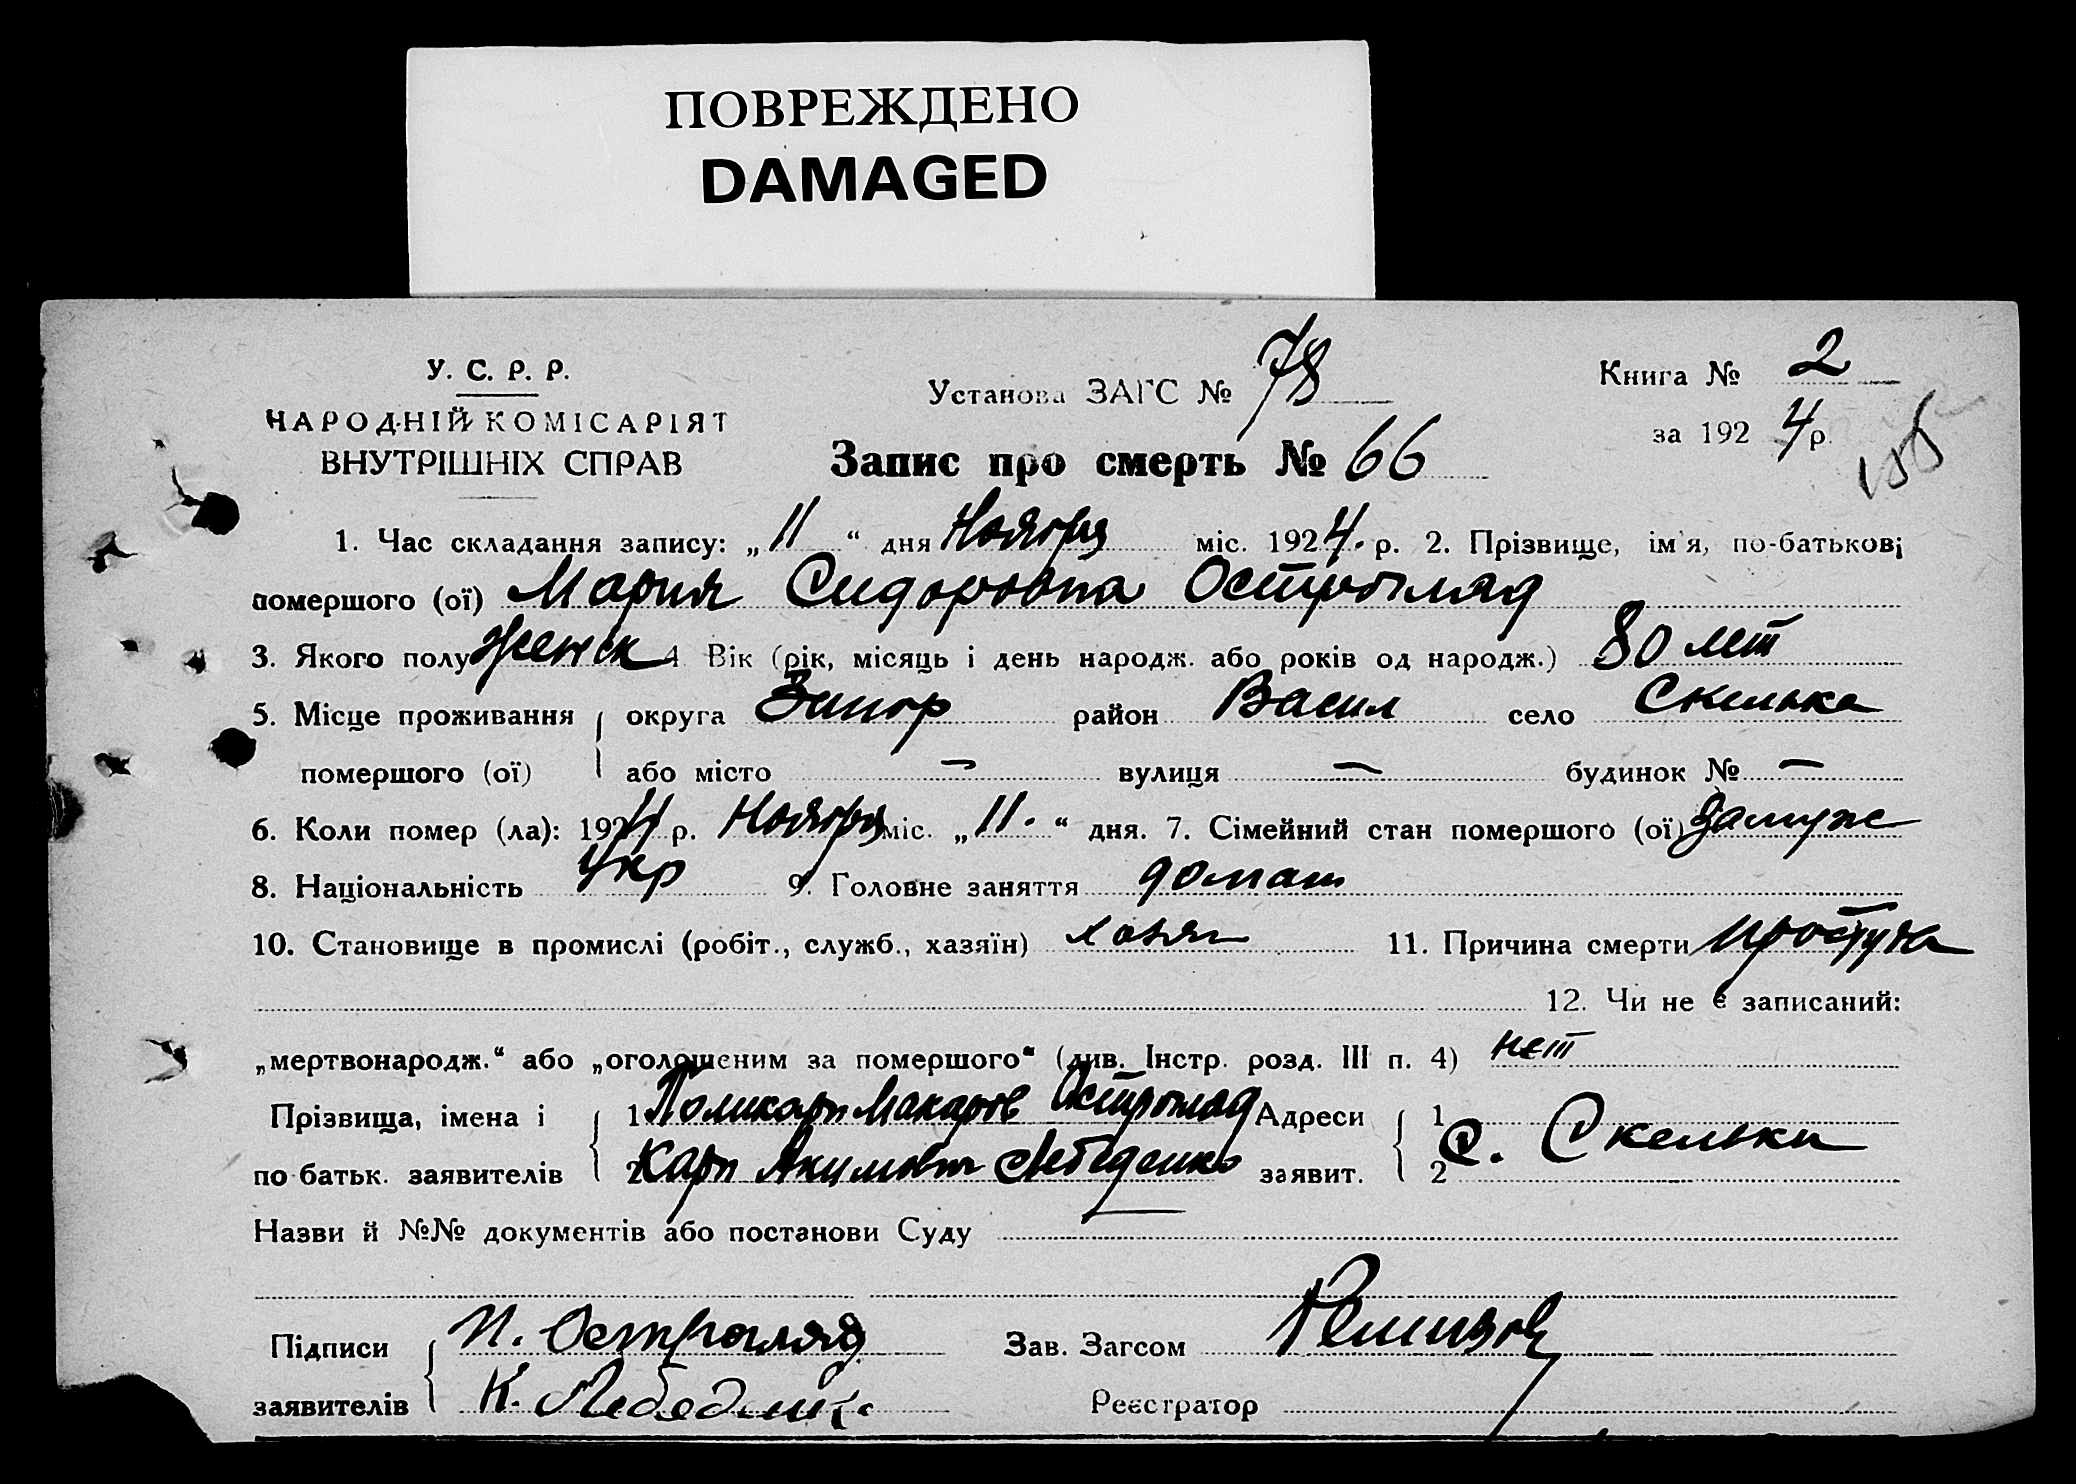 ПОВРЕЖДЕНО
DAMAGED
У. С. Р. Р.
НАРОДНІЙ КОМІСАРІЯТ
ВНУТРІШНІХ СПРАВ
Установа ЗАГС № 78
Запис про смерть № 66
Книга № 2
за 1924 р.
1. Час складання запису: „11“ дня Ноября міс. 1924. р. 2. Прізвище, ім'я, по-батькові
помершого (ої) Мария Сидоровна Острогляд
3. Якого полу женск 4 Вік (рік, місяць і день народж. або років од народж.) 80 лет
5. Місце проживання округа Запор район Васил село Скелька
помершого (ої) або місто — вулиця — будинок № —
6. Коли помер (ла): 1924 р. Ноября міс. „11.“ дня. 7. Сімейний стан помершого (ої) замуж
8. Національність Укр 9. Головне заняття домаш
10. Становище в промислі (робіт., служб., хазяїн) хозяй 11. Причина смерти простуда
12. Чи не є записаний:
„мертвонародж.“ або „оголошеним за помершого“ (див. Інстр. розд. III п. 4) нет
Прізвища, імена і 1 Поликарп Макаров Острогляд Адреси 1
по-батьк. заявителів 2 Карп Акимович Лебеденко заявит. 2 с. Скельки
Назви й №№ документів або постанови Суду
Підписи П. Острогляд Зав. Загсом
заявителів К. Лебеденко Реєстратор